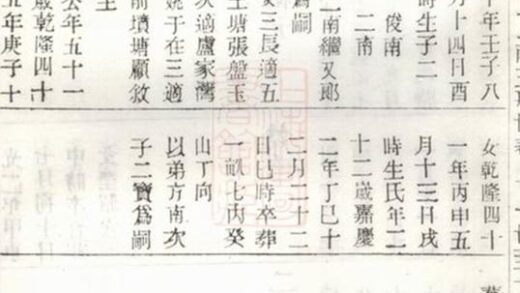 年壬子八
月十四日酉
時生子二
俊南
二南
一南繼又郎
爲嗣
女三長適五
土塘張盤玉
次適盧家灣
姚于在三適
前墳塘顧敘
主
公年五十一
歲乾隆四十
五年庚子十
女乾隆四十
一年丙申五
月十三日戌
時生氏年二
十二歲嘉慶
二年丁巳十
二月二十二
日巳時卒葬
一甽七丙癸
山丁向
以弟方南次
子二寶爲嗣